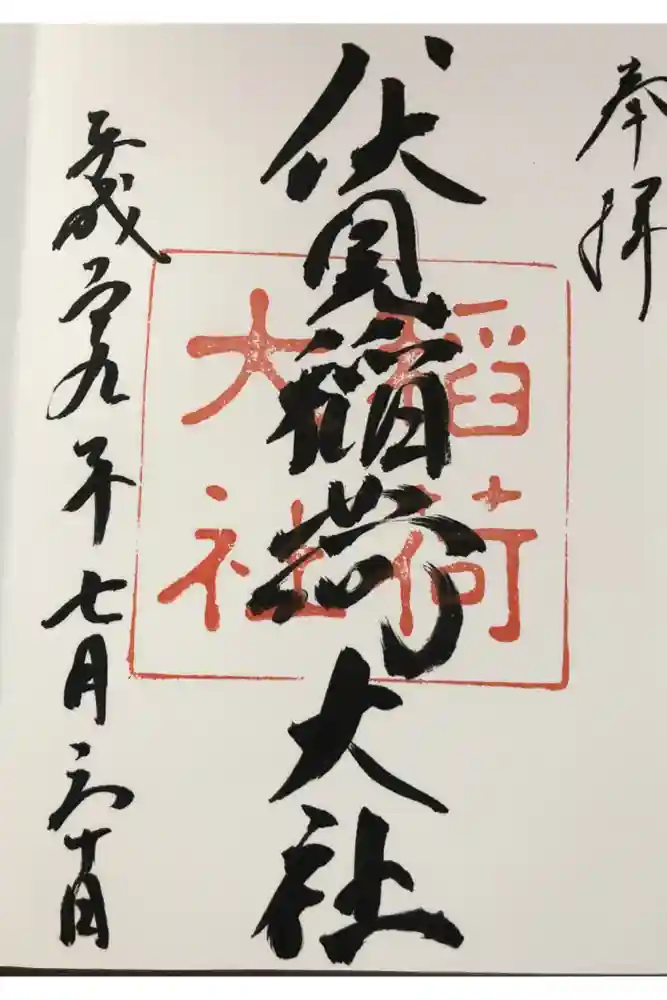 奉拝
伏見稲荷大社
稲荷
大社
平成二十九年七月三十日